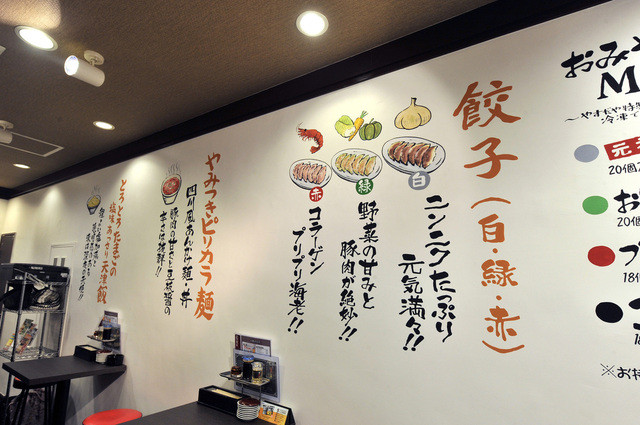 おみ
M
〜やまだや特
冷凍で
元
20個
お
20個
18
※お持
餃子（白・緑・赤）
白
ニンニクたっぷり
元気満々!!
緑
野菜の甘みと
豚肉が絶妙!!
赤
コラーゲン
プリプリ海老!!
やみつきピリカラ麺
四川風あんかけ麺・丼
豚肉の甘さと豆板醤の
辛さは抜群!!
とろとろたまごの
塩味あっさり天津飯